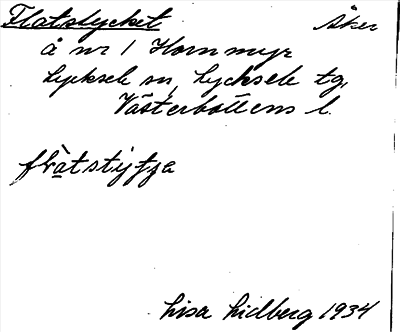 Flatstycket Åker
å nr 1 Kornmyr
Lycksele sn, Lycksele tg,
Västerbottens l.
flàtstytja
Lisa Lidberg 1934